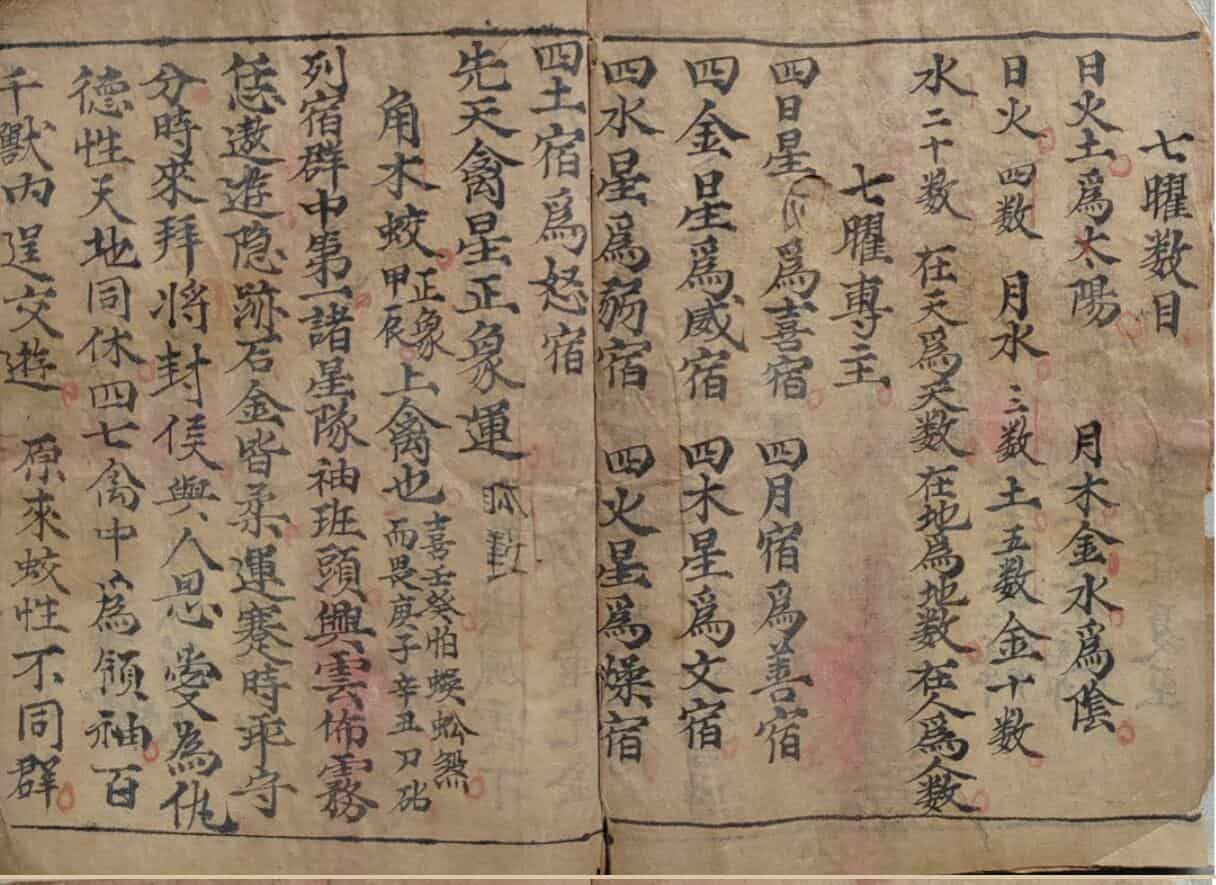 七曜数目
日火土為太陽　月木金水為陰
日火四数　月水三数土五数金十数
水二十数　在天為天数在地為地数在人為人数
七曜専主
四日星為喜宿　四月宿為善宿
四金星為威宿　四木星為文宿
四水星為弱宿　四火星為燥宿
四土宿爲怒宿
先天禽星正象運
角木蛟正象甲辰上禽也喜壬癸怕蜈蚣煞而畏庚子辛丑刀砧
列宿群中第一諸星隊袖班頭興雲佈霧
恁遨遊隐跡石金皆柔運蹇時乖守
分時來拜將封侯與人恩愛為仇
德性天地同休四七禽中為領袖百
千獸内逞交遊　原來蛟性不同群